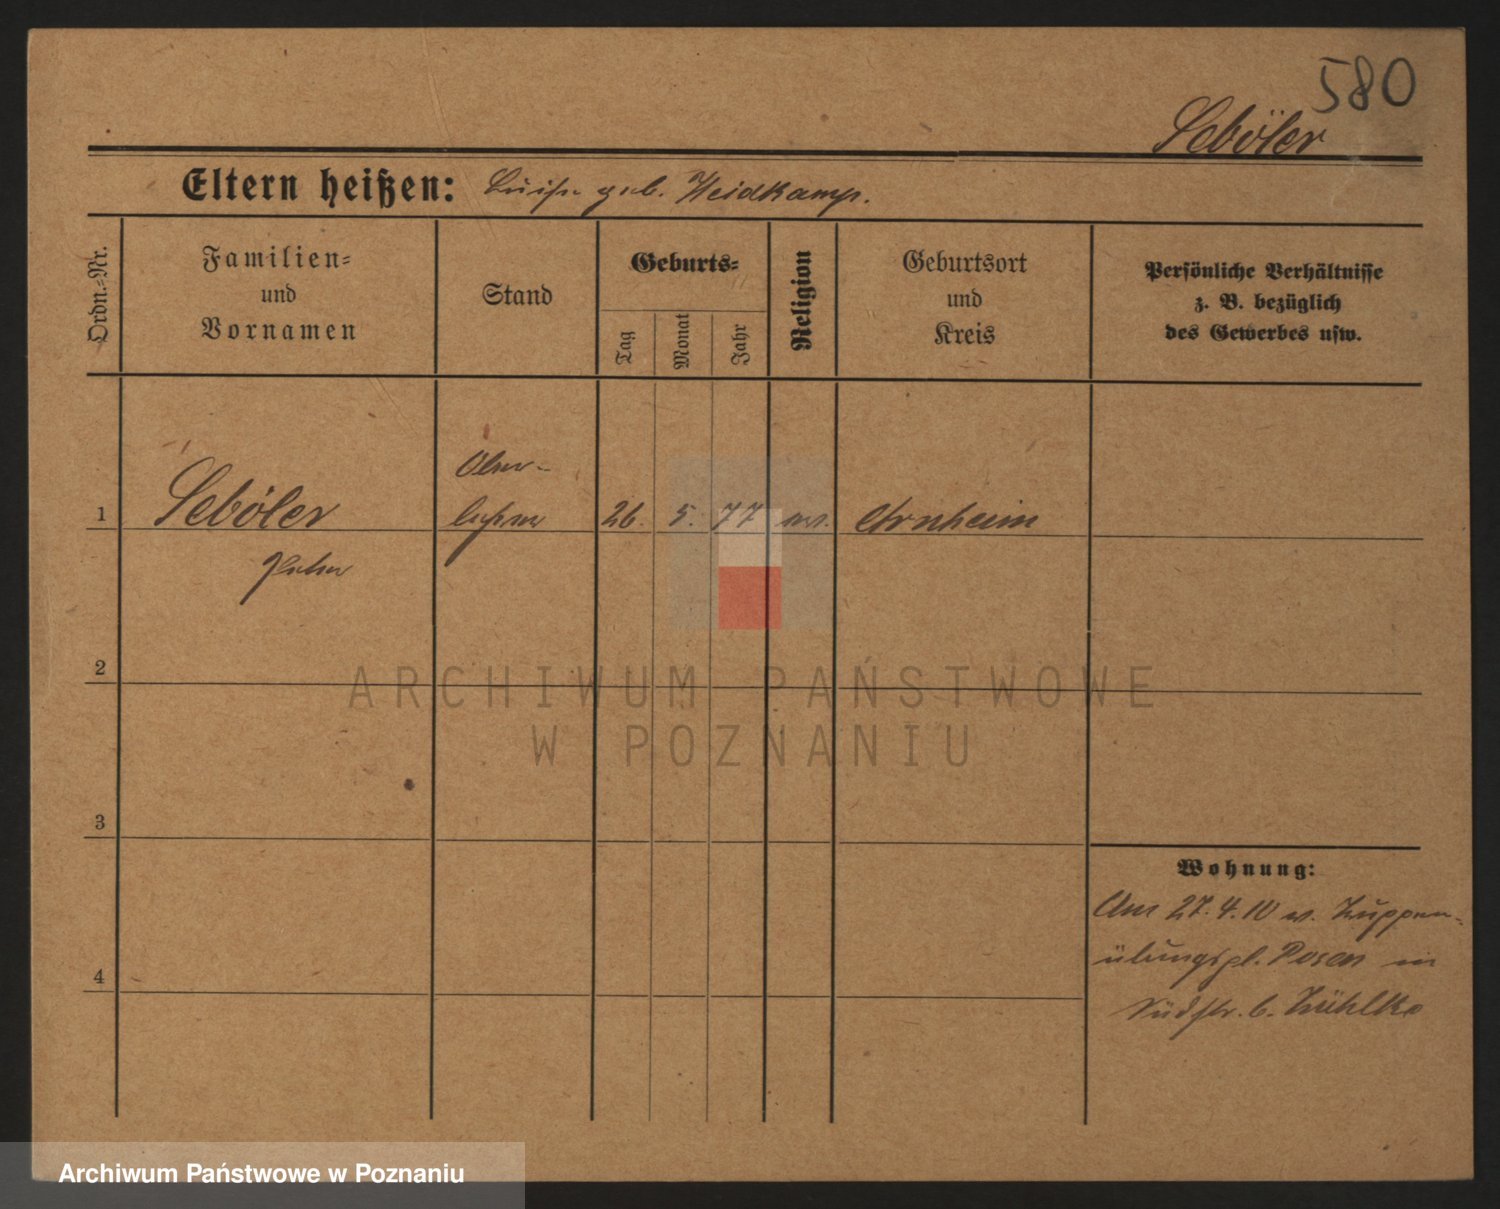 580
Seböler
Eltern heißen: Luise geb. Heidkamp.
Ordn.-Nr.
Familien-
und
Vornamen
Stand
Geburts-
Tag
Monat
Jahr
Religion
Geburtsort
und
Kreis
Persönliche Verhältnisse
z. B. bezüglich
des Gewerbes usw.
Ober-
1 Seböler 26. 5. 77 Arnheim
2
ARCHIWUM PAŃSTWOWE
W POZNANIU
3
Wohnung:
Am 27.4.10 v. Truppen-
übungspl. Posen in
4
Südstr. b. Zühlke
Archiwum Państwowe w Poznaniu